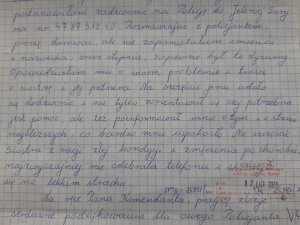 postanowiłam zadzwonić na Policję do Jeleniej Góry
na nr. 47 87 312 40. Rozmawiając z policjantem,
proszę darować, ale nie zapamiętałam imienia
i nazwiska, oraz stopnia, zapewne był to dyżurny
Opowiedziałam mu o moim problemie i trosce
o siostrę i jej partnera. Na szczęście panu udało
się dodzwonić i nie tylko zorientował się czy potrzebna
jest pomoc, ale też poinformował mnie o tym i o stanie
najbliższych, co bardzo mnie uspokoiło. Na szczęście
siostra z racji złej kondycji i zmęczenia po chorobie
najzwyczajniej nie odebrała telefonu i
się na lekkim strachu.
Na ręce Pana Komendanta pragnę złożyć
serdeczne podziękowania dla owego Policjanta